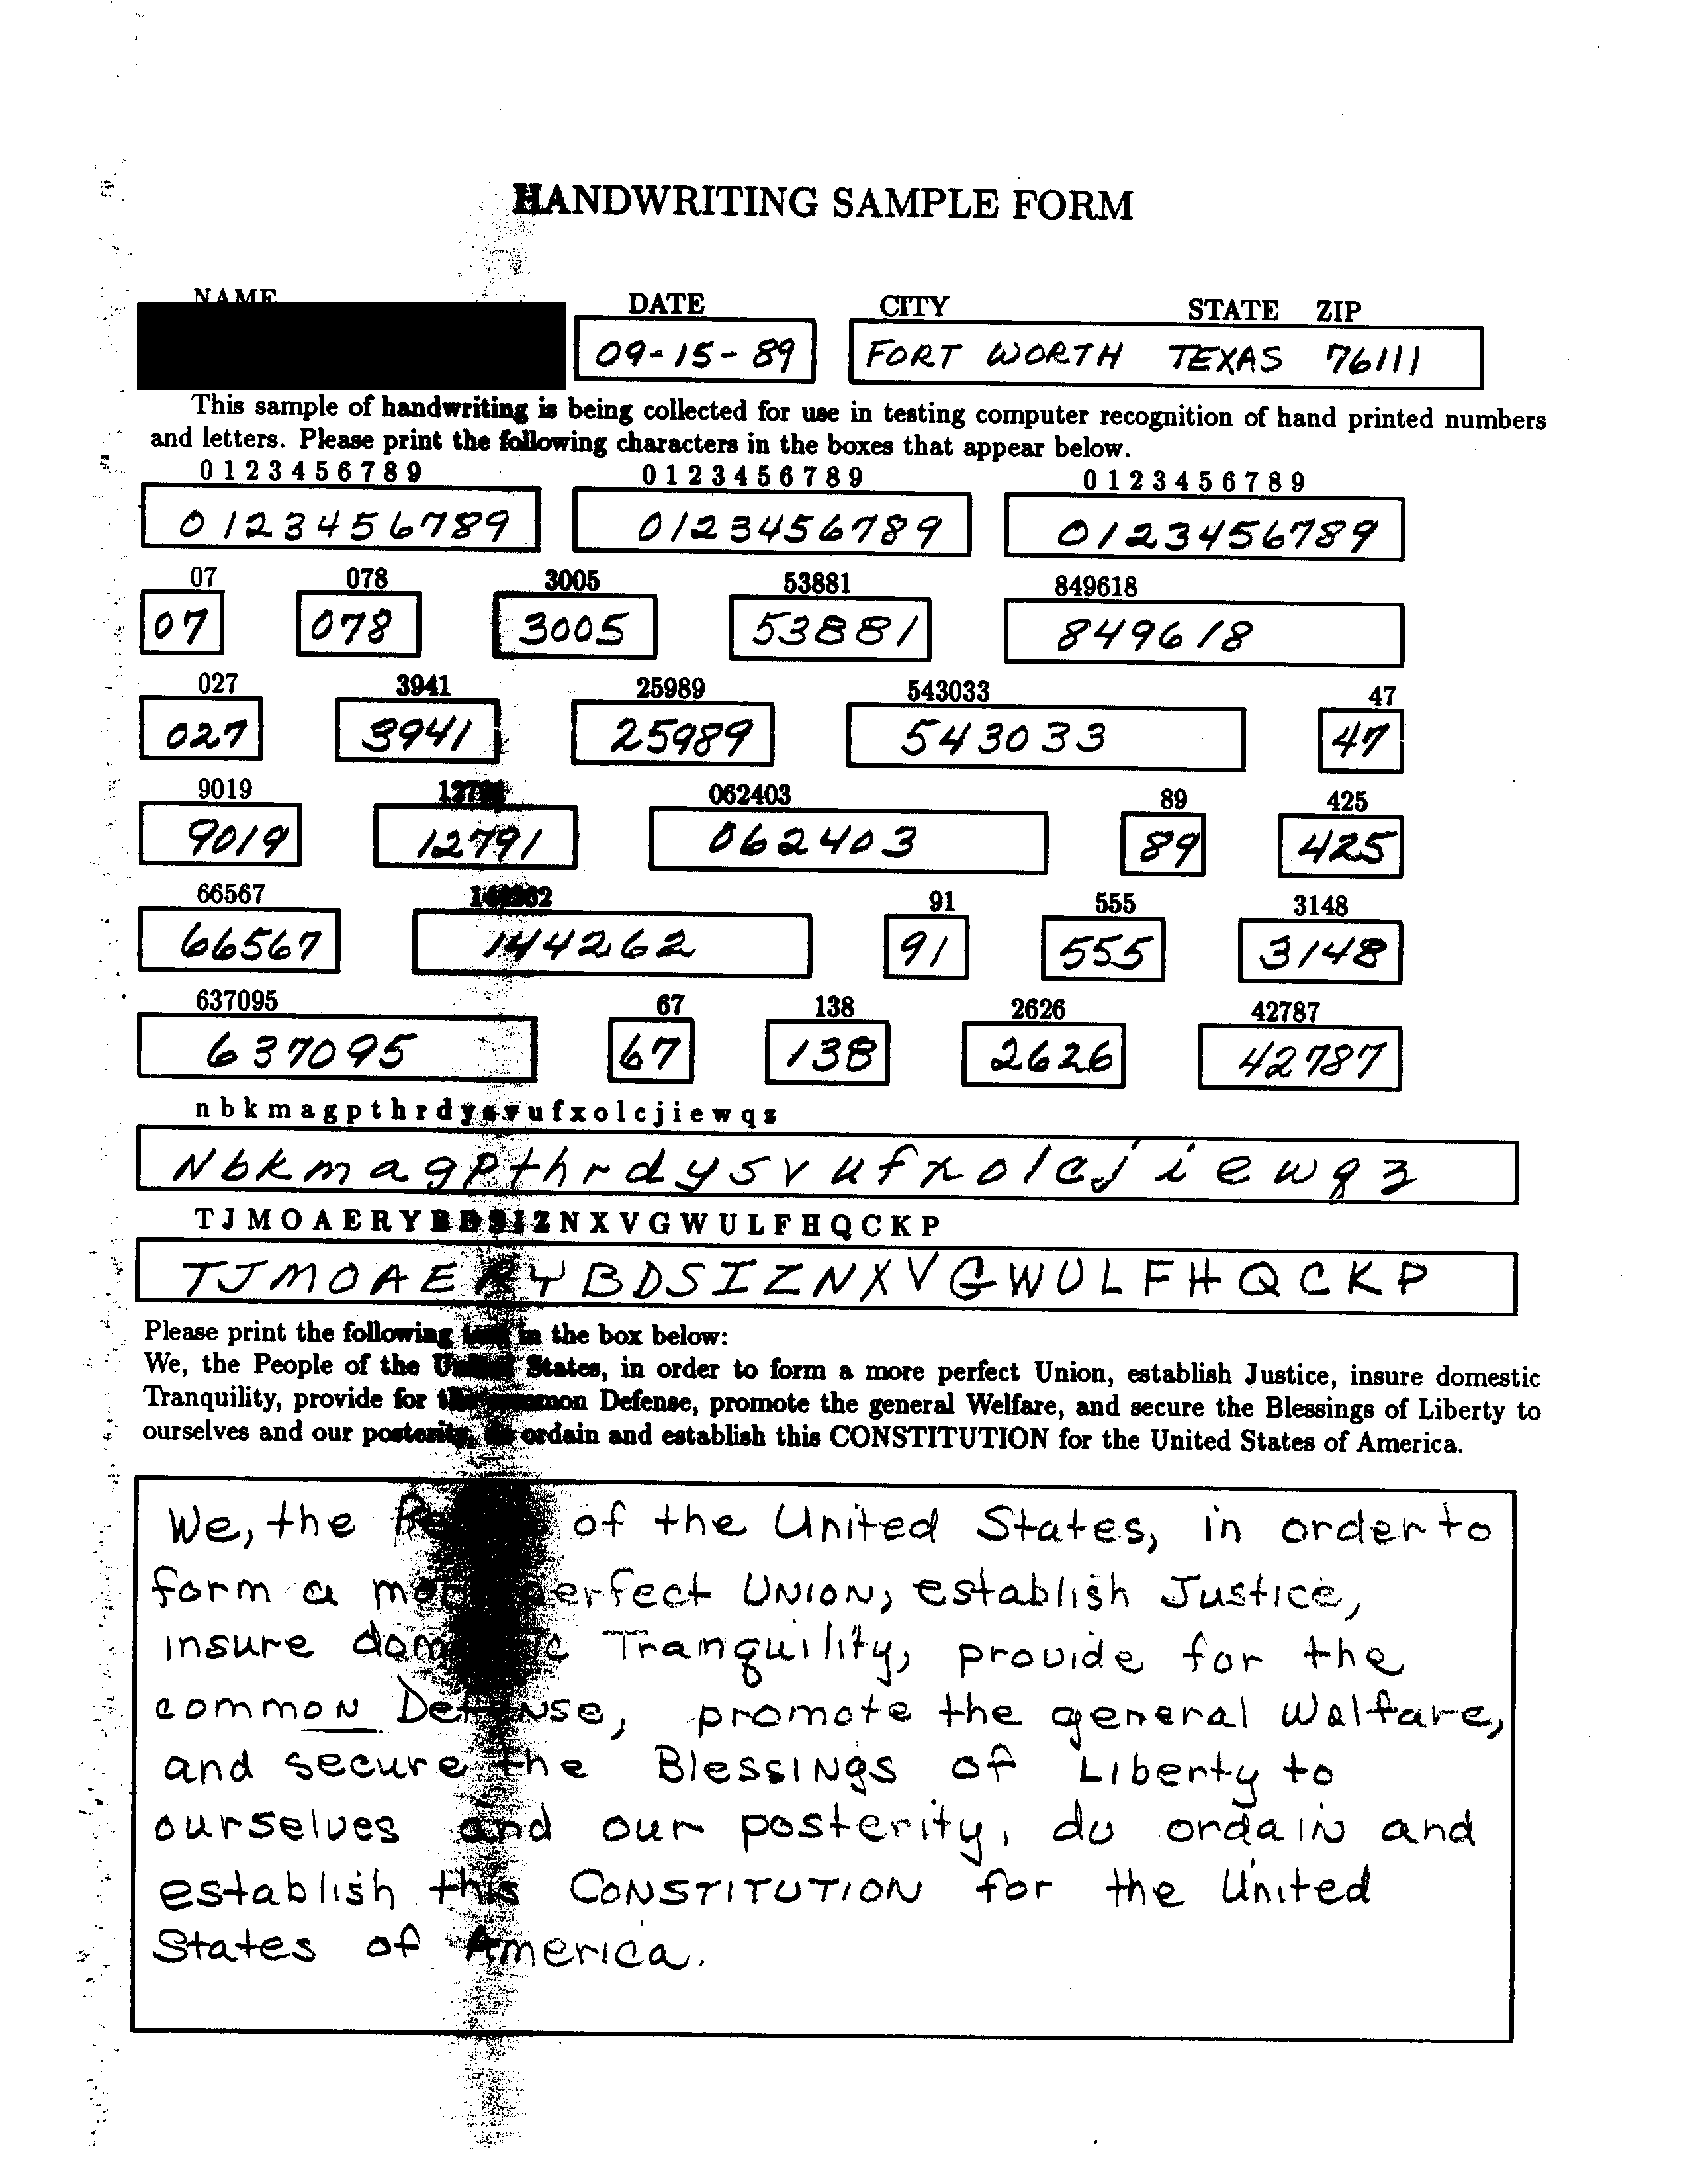 HANDWRITING SAMPLE FORM
NAME DATE CITY STATE ZIP
09-15-89 FORT WORTH TEXAS 76111
This sample of handwriting is being collected for use in testing computer recognition of hand printed numbers
and letters. Please print the following characters in the boxes that appear below.
0 1 2 3 4 5 6 7 8 9 0 1 2 3 4 5 6 7 8 9 0 1 2 3 4 5 6 7 8 9
0123456789 0123456789 0123456789
07 078 3005 53881 849618
07 078 3005 53881 849618
027 3941 25989 543033 47
027 3941 25989 543033 47
9019 12791 062403 89 425
9019 12791 062403 89 425
66567 144262 91 555 3148
66567 144262 91 555 3148
637095 67 138 2626 42787
637095 67 138 2626 42787
n b k m a g p t h r d y s v u f x o l c j i e w q z
N b k m a g p t h r d y s v u f x o l c j i e w q z
T J M O A E R Y B D S I Z N X V G W U L F H Q C K P
T J M O A E R Y B D S I Z N X V G W U L F H Q C K P
Please print the following text in the box below:
We, the People of the United States, in order to form a more perfect Union, establish Justice, insure domestic
Tranquility, provide for the common Defense, promote the general Welfare, and secure the Blessings of Liberty to
ourselves and our posterity, do ordain and establish this CONSTITUTION for the United States of America.
We, the of the United States, in order to
form a more perfect UNION, establish Justice,
insure Tranquility, provide for the
common Defense, promote the general Walfare,
and secure the Blessings of Liberty to
ourselves and our posterity, do ordain and
establish this CONSTITUTION for the United
States of America.